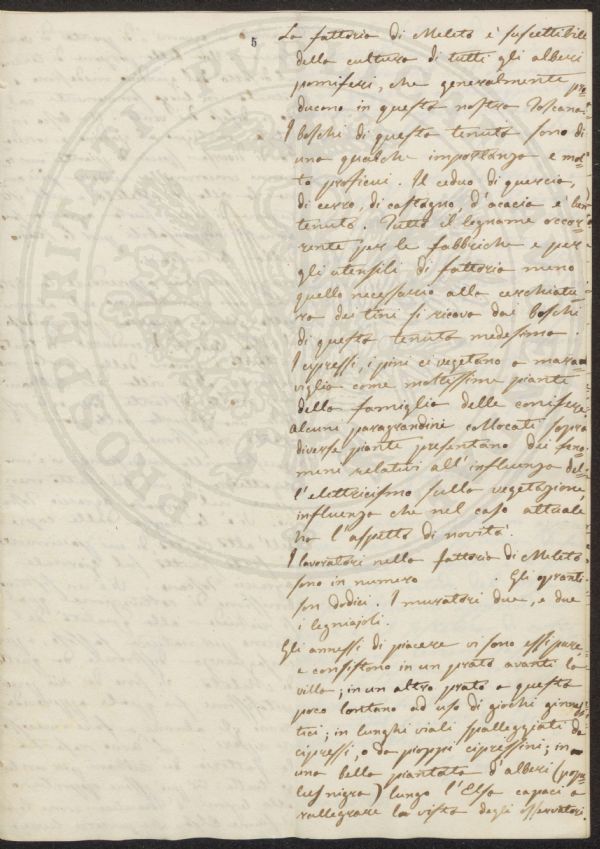 5
La fattoria di Meleto è suscettibile
della cultura di tutti gli alberi
pomiferi, che generalmente pro=
ducono in questa nostra Toscana.
I boschi di questa tenuta sono di
una qualche importanza e mol=
to proficui. Il ceduo di quercia,
di cerro, di castagno, d'acacia è ben
tenuto. Tutto il legname occor=
rente per le fabbriche e per
gli utensili di fattoria meno
quello necessario alla cerchiatu=
ra dei tini si ricava dai boschi
di questa tenuta medesima.
I cipressi, i pini ci vegetano a mara=
viglia come moltissime piante
della famiglia delle conifere
alcuni paragrandini collocati sopra
diverse piante presentano dei feno=
meni relativi all'influenza del=
l'elettricismo sulla vegetazione,
influenza che nel caso attuale
ha l'aspetto di novità.
I lavoratori nella fattoria di Meleto
sono in numero . Gli opranti
son dodici. I muratori due, e due
i legnajoli.
Gli annessi di piacere vi sono essi pure,
e consistono in un prato avanti la
villa; in un altro prato a questa
poco lontano ad uso di giochi ginnas=
tici; in lunghi viali spalleggiati da
cipressi, o da pioppi cipressini; in
una bella piantata d'alberi (popu=
lus nigra) lungo l'Elsa capaci a
rallegrare la vista degli osservatori.
PROSPERITATI PUBLICAE